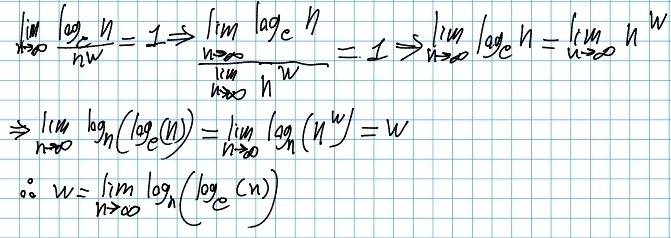 lim n→∞ log_e n / n^w = 1 ⇒ lim n→∞ log_e n / lim n→∞ n^w = 1 ⇒ lim n→∞ log_e n = lim n→∞ n^w
⇒ lim n→∞ log_n(log_e(n)) = lim n→∞ log_n(n^w) = w
∴ w = lim n→∞ log_n(log_e(n))